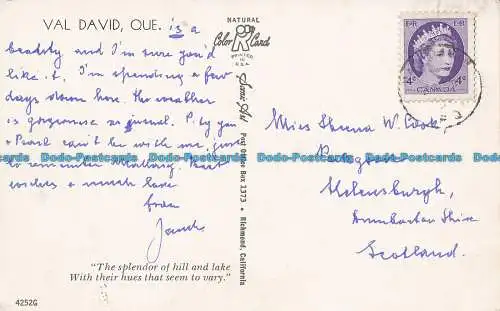 VAL DAVID, QUE. is a
beauty and I'm sure you'd
like it. I'm spending a few
days down here. The weather
is gorgeous as usual. Pity you
+ Pearl can't be with me, just
to remember Best
wishes & much love
from
NATURAL
Color Card
PRINTED IN U.S.A.
Scenic Art Post Office Box 1373 • Richmond, California
CANADA
4¢ 4¢
Miss Sheena W. Cook,
Helensburgh,
Dumbarton Shire
Scotland.
Dodo-Postcards Dodo-Postcards Dodo-Postcards Dodo-Postcards Dodo-Postcards
"The splendor of hill and lake
With their hues that seem to vary."
4252G